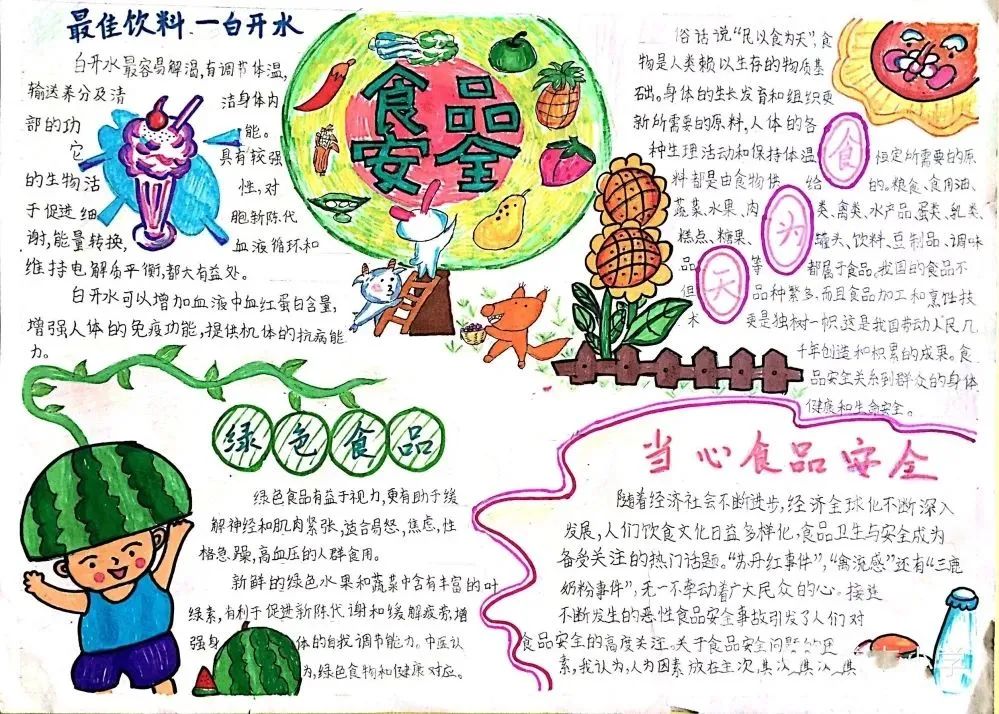 最佳饮料 — 白开水
白开水最容易解渴,有调节体温,
输送养分及清洁身体内
部的功能。
它具有较强
的生物活性,对
于促进细胞新陈代
谢,能量转换,血液循环和
维持电解质平衡,都大有益处。
白开水可以增加血液中血红蛋白含量,
增强人体的免疫功能,提供机体的抗病能
力。
食品
安全
俗话说“民以食为天”,食
物是人类赖以生存的物质基
础。身体的生长发育和组织更
新所需要的原料,人体的各
种生理活动和保持体温恒定所需要的原
料都是由食物供给的。粮食、食用油、
蔬菜、水果、肉类、禽类、水产品、蛋类、乳类、
糕点、糖果、罐头、饮料、豆制品、调味
品等都属于食品。我国的食品不
但品种繁多,而且食品加工和烹饪技
术更是独树一帜,这是我国劳动人民几
千年创造和积累的成果。食
品安全关系到群众的身体
健康和生命安全。
食
为
天
绿色食品
绿色食品有益于视力,更有助于缓
解神经和肌肉紧张,适合易怒,焦虑,性
格急躁,高血压的人群食用。
新鲜的绿色水果和蔬菜中含有丰富的叶
绿素,有利于促进新陈代谢和缓解疲劳,增
强身体的自我调节能力。中医认
为,绿色食物和健康对应。
当心食品安全
随着经济社会不断进步,经济全球化不断深入
发展,人们饮食文化日益多样化,食品卫生与安全成为
备受关注的热门话题。“苏丹红事件”,“禽流感”还有“三鹿
奶粉事件”,无一不牵动着广大民众的心。接连
不断发生的恶性食品安全事故引发了人们对
食品安全的高度关注。关于食品安全问题的因
素,我认为,人为因素放在主次,其次,其次,其
小学